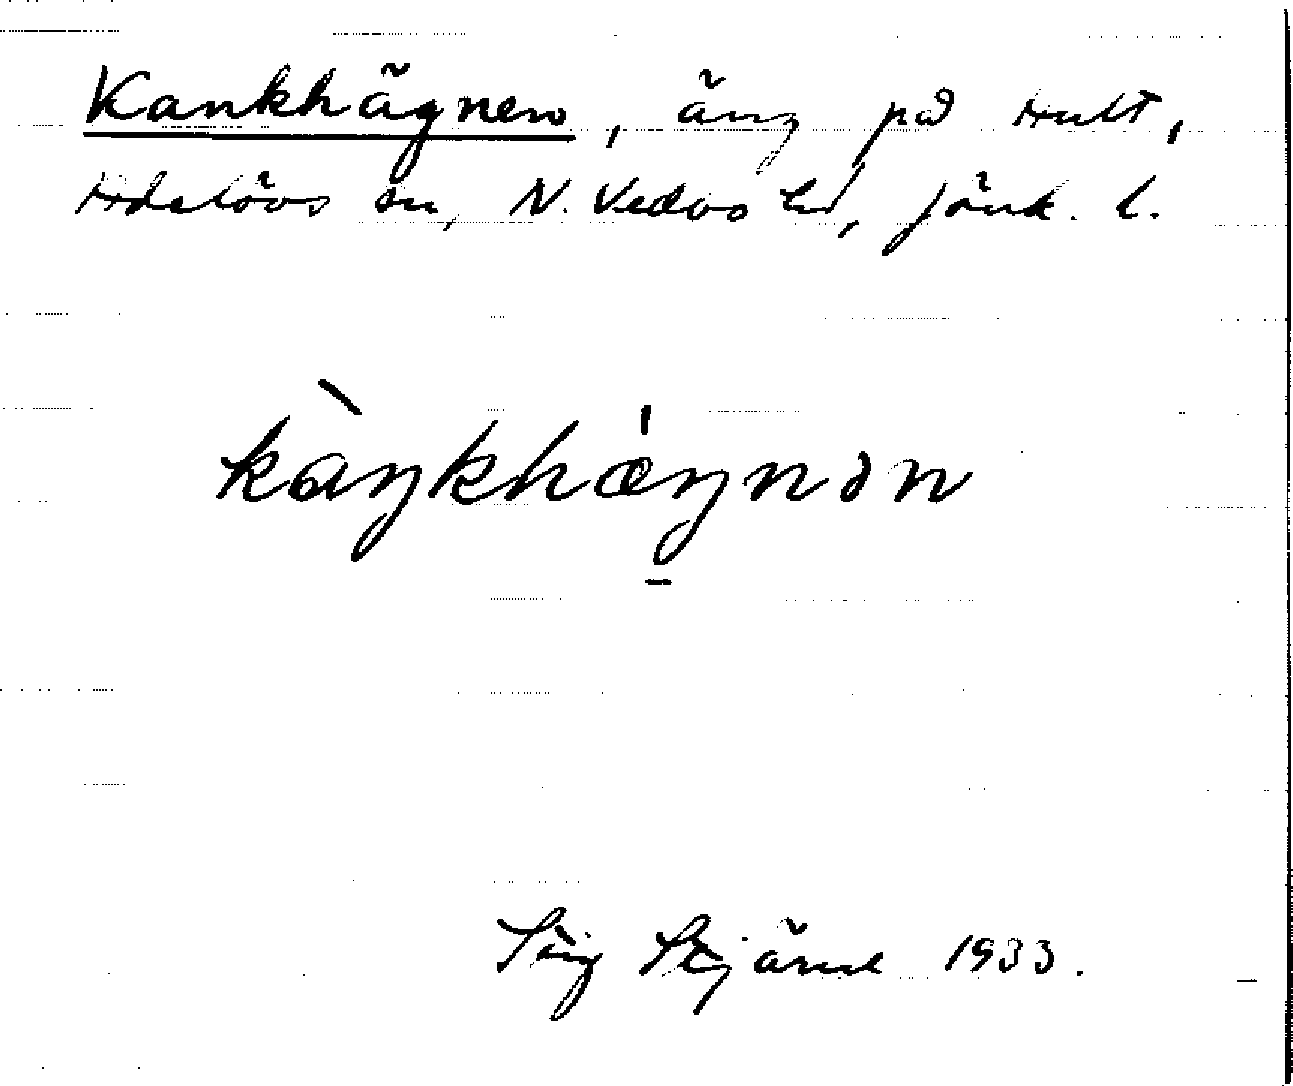 Kankhägnen, äng på Hult,
Adelövs sn, N. Vedbo hd, Jönk. l.
kàŋkhæ̍ŋnən
Stig Stjärne 1933.